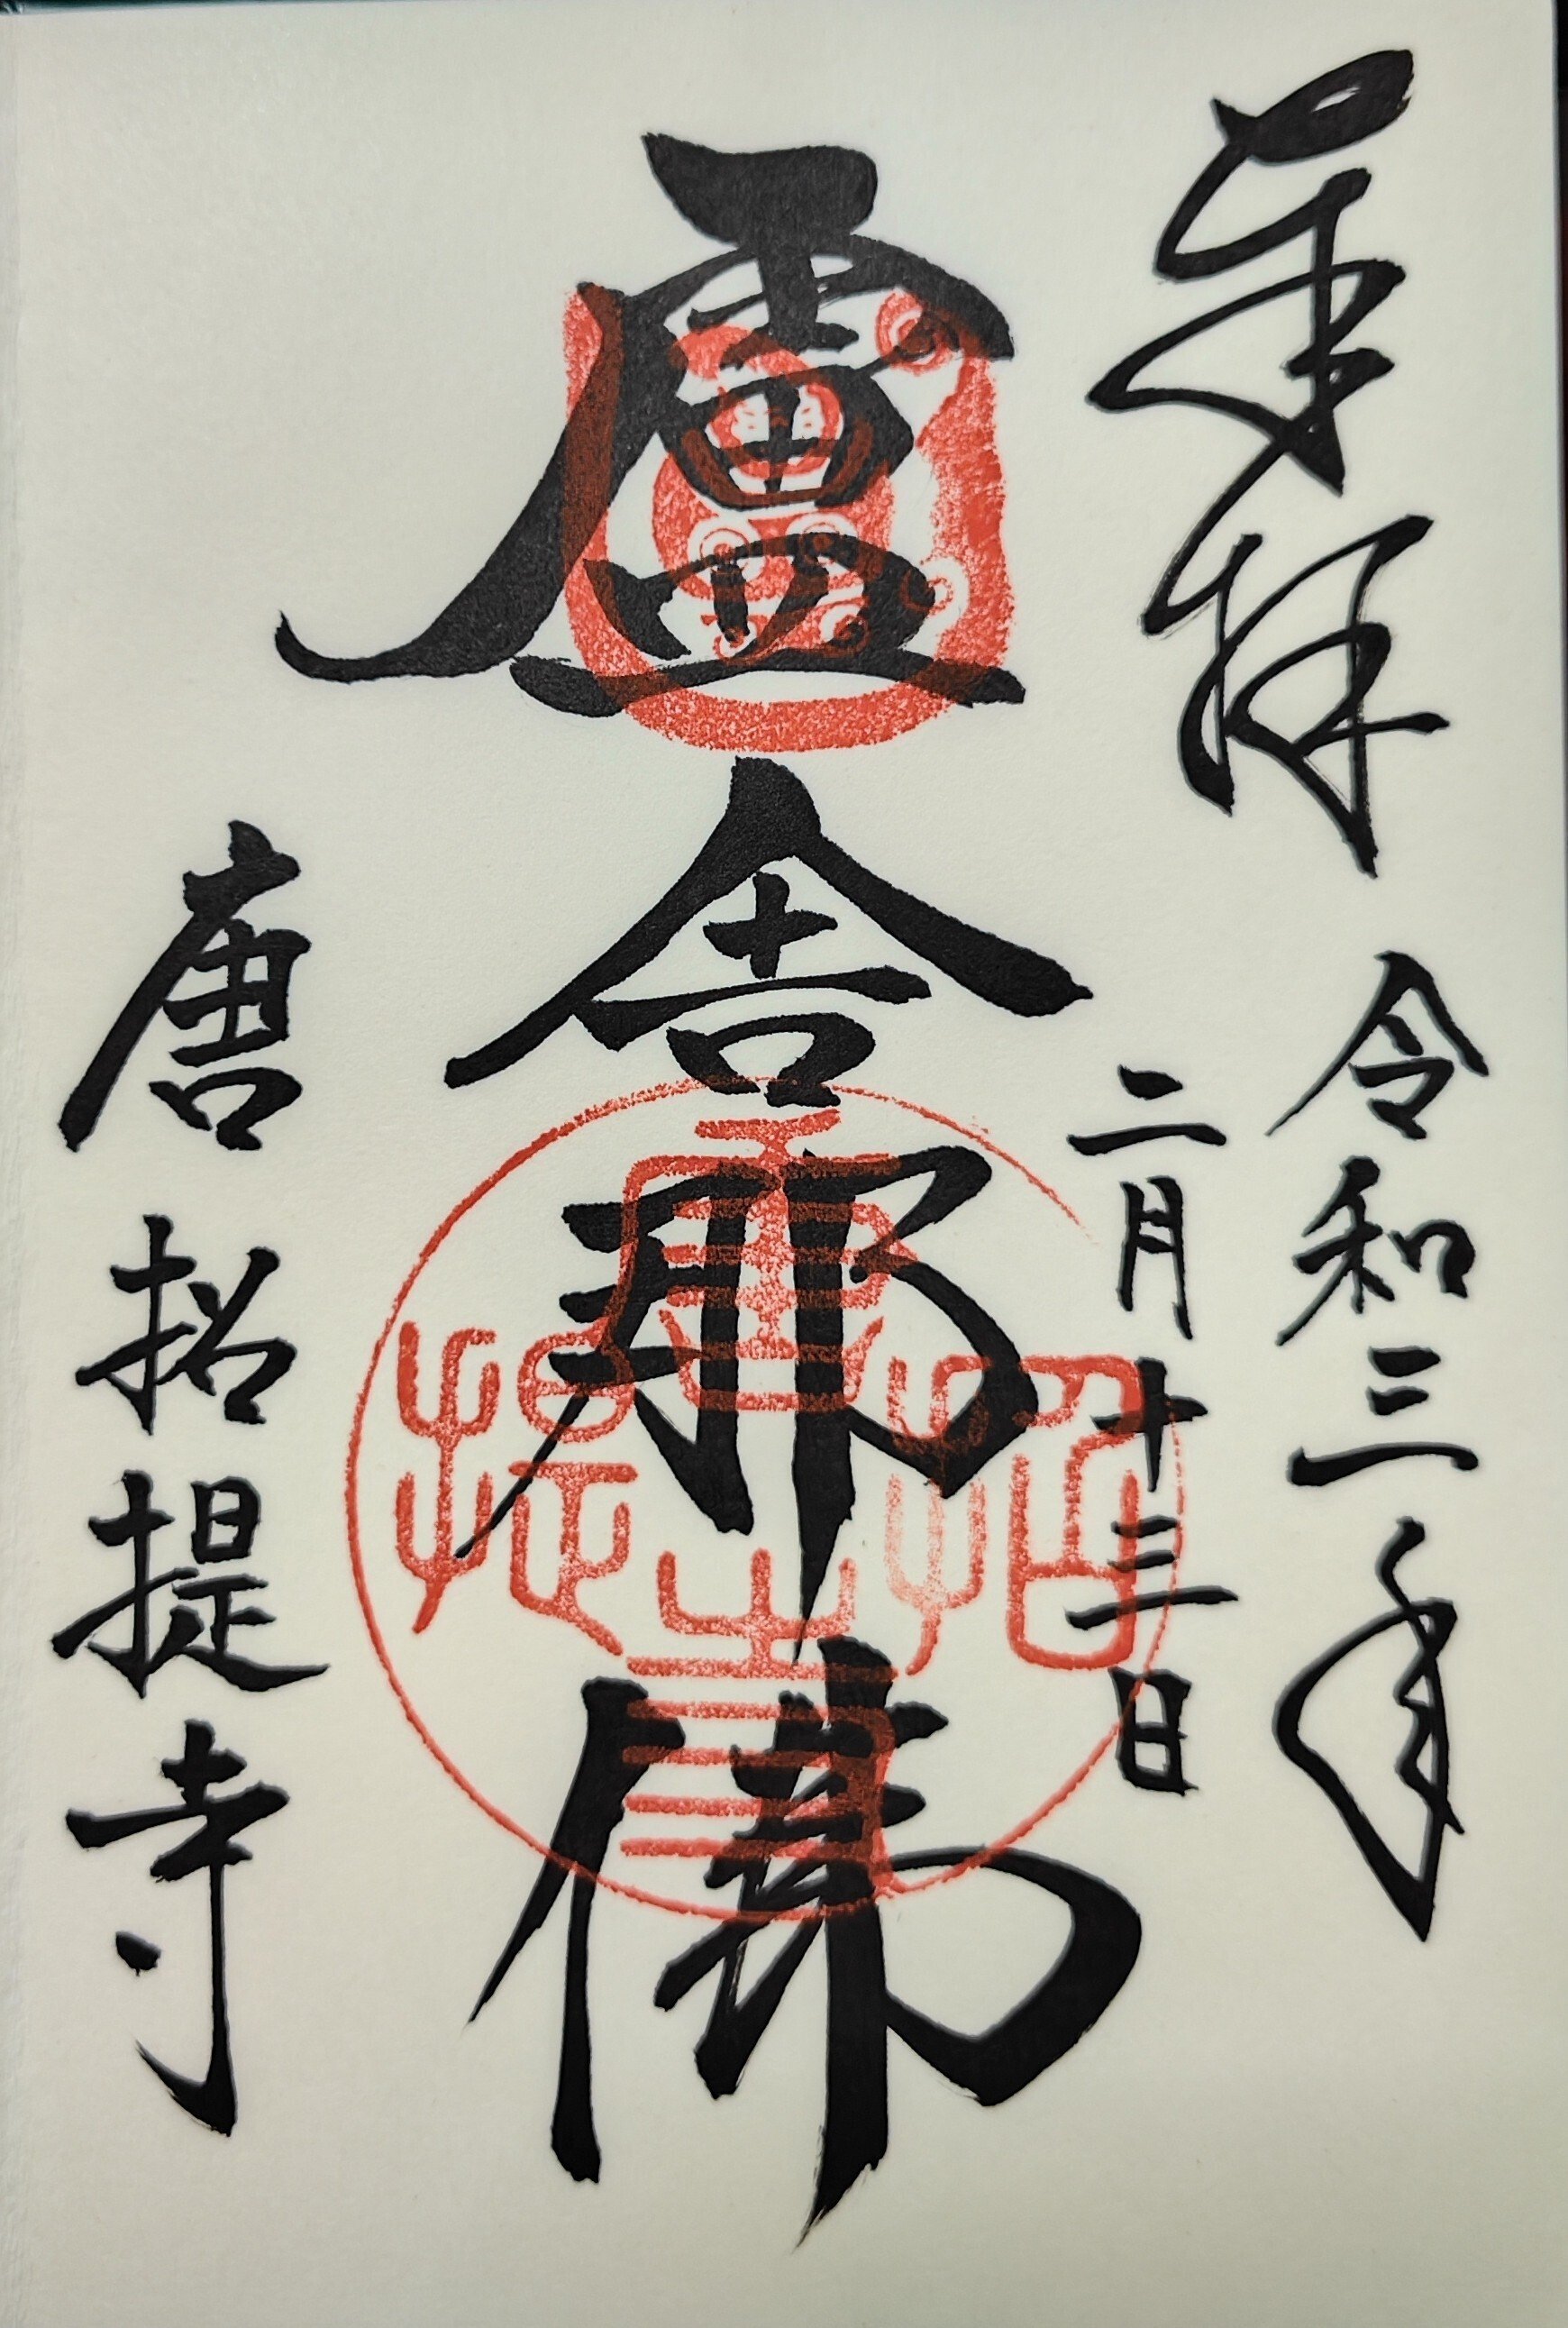 奉拝
令和三年
二月十三日
盧舎那佛
唐招提寺